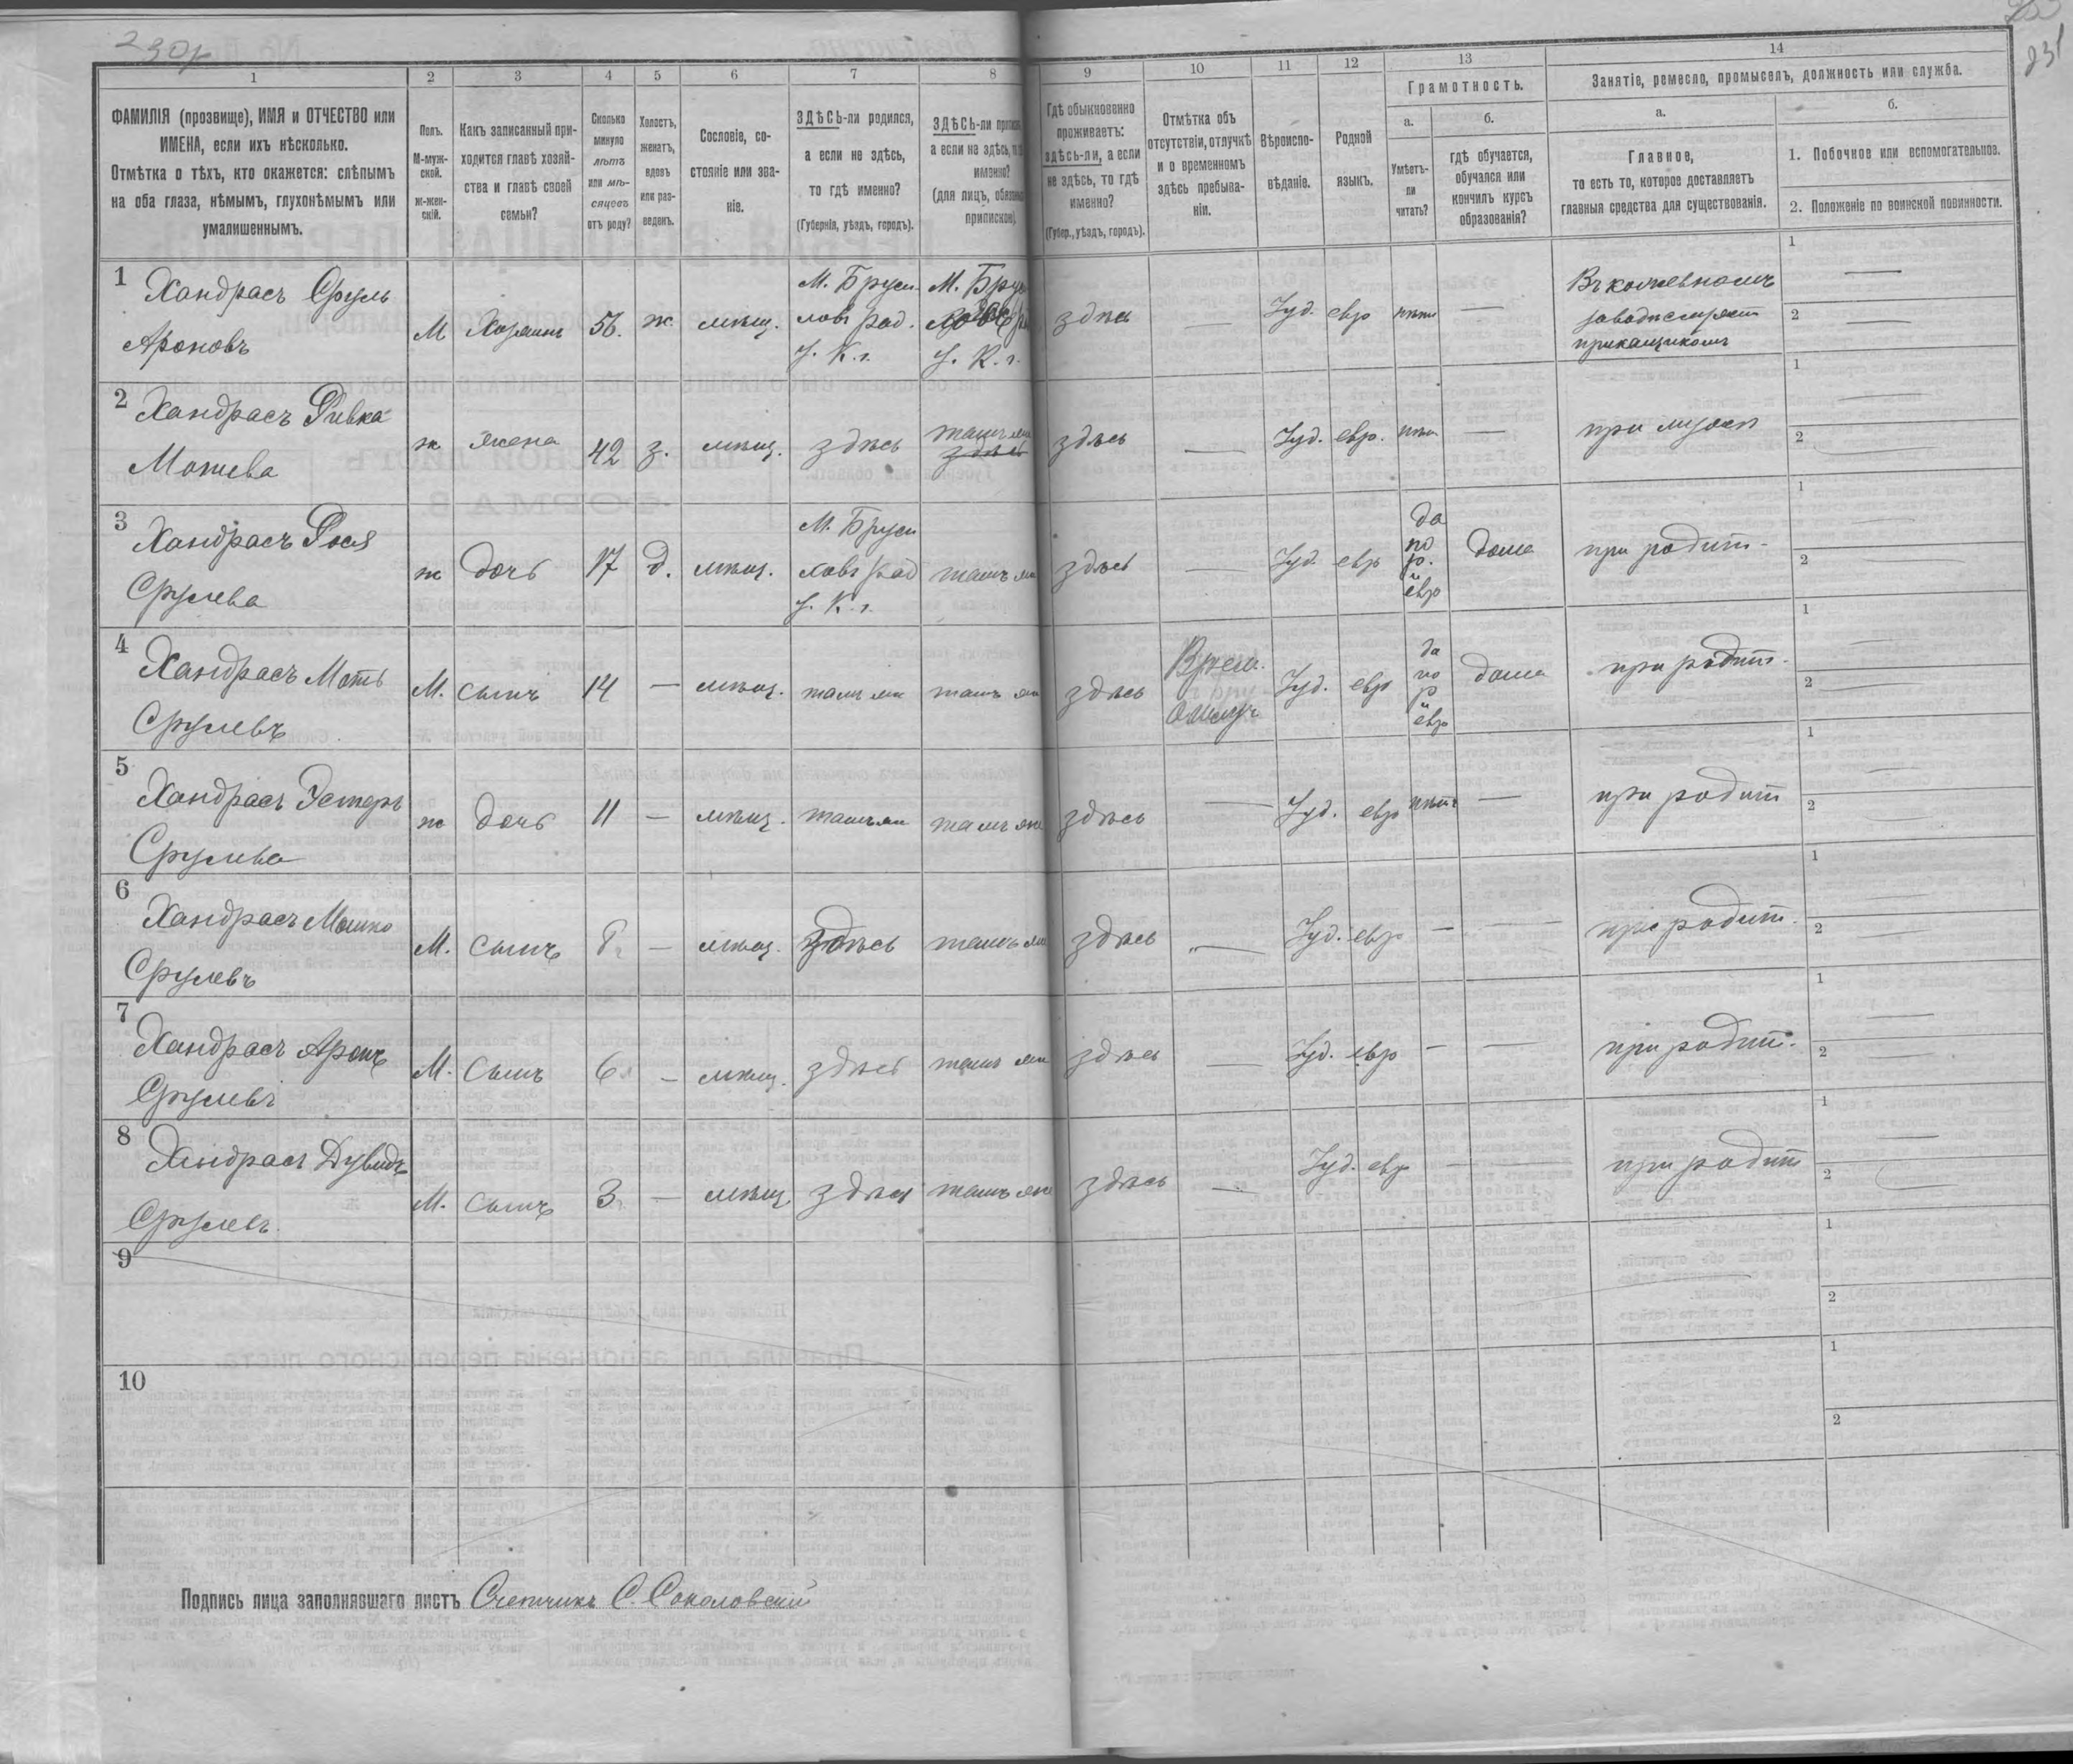 230
231
1
2
3
4
5
6
7
8
9
10
11
12
13
14
ФАМИЛІЯ (прозвище), ИМЯ и ОТЧЕСТВО или
ИМЕНА, если ихъ нѣсколько.
Отмѣтка о тѣхъ, кто окажется: слѣпымъ
на оба глаза, нѣмымъ, глухонѣмымъ или
умалишеннымъ.
Полъ.
М-муж-
ской.
ж-жен-
скій.
Какъ записанный при-
ходится главѣ хозяй-
ства и главѣ своей
семьи?
Сколько
минуло
лѣтъ
или мѣ-
сяцевъ
отъ роду?
Холостъ,
женатъ,
вдовъ
или раз-
веденъ.
Сословіе, со-
стояніе или зва-
ніе.
ЗДѢСЬ-ли родился,
а если не здѣсь,
то гдѣ именно?
(Губернія, уѣздъ, городъ).
ЗДѢСЬ-ли
а если не здѣсь,
именно?
(для лицъ,
припиской).
Гдѣ обыкновенно
проживаетъ:
здѣсь-ли, а если
не здѣсь, то гдѣ
именно?
(Губер., уѣздъ, городъ).
Отмѣтка объ
отсутствіи, отлучкѣ
и о временномъ
здѣсь пребыва-
ніи.
Вѣроиспо-
вѣданіе.
Родной
языкъ.
Грамотность.
а.
Умѣетъ-
ли
читать?
б.
гдѣ обучается,
обучался или
кончилъ курсъ
образованія?
Занятіе, ремесло, промыселъ, должность или служба.
а.
Главное,
то есть то, которое доставляетъ
главныя средства для существованія.
б.
1. Побочное или вспомогательное.
2. Положеніе по воинской повинности.
1 Хандрасъ Сруль
Ароновъ
М Хозяинъ 56. ж мѣщ.
М. Бруси-
ловъ Рад.
у. К. г.
М. Бру
у. К. г.
здѣсь Іуд. евр нѣтъ —
Въ кожевномъ
заводѣ
прикащикомъ
1 —
2 —
2 Хандрасъ Ривка
Мошева
ж жена 42 з. мѣщ. здѣсь
тамъ же
здѣсь
здѣсь — Іуд. евр. нѣтъ — при мужѣ
1 —
2 —
3 Хандрасъ Рося
Срулева
ж дочь 17 д. мѣщ.
М. Бруси
ловъ Рад
у. К. г.
тамъ же здѣсь — Іуд. евр
да
по
р.
и
евр
дома при родит-
1 —
2 —
4 Хандрасъ Моть
Срулевъ
М. сынъ 14 — мѣщ. тамъ же тамъ же здѣсь
Врем.
Отлуч
Іуд. евр
да
по
р
и
евр
дома при родит.
1 —
2 —
5 Хандрасъ Эстеръ
Срулева
ж дочь 11 — мѣщ. тамъ же тамъ же здѣсь — Іуд. евр нѣтъ — при родит
1 —
2 —
6 Хандрасъ Мошко
Срулевъ
М. сынъ — мѣщ. здѣсь тамъ же здѣсь — Іуд. евр — — при родит.
1 —
2 —
7 Хандрасъ Аронъ
Срулевъ
М. сынъ 6 — мѣщ. здѣсь тамъ же здѣсь — Іуд. евр — — при родит.
1 —
2 —
8 Хандрасъ Дувидъ
Срулевъ
М. сынъ 3 — мѣщ здѣсь тамъ же здѣсь — Іуд. евр — — при родит
1 —
2 —
9
1
2
10
1
2
Подпись лица заполнявшаго листъ Счетчикъ С. Соколовскій